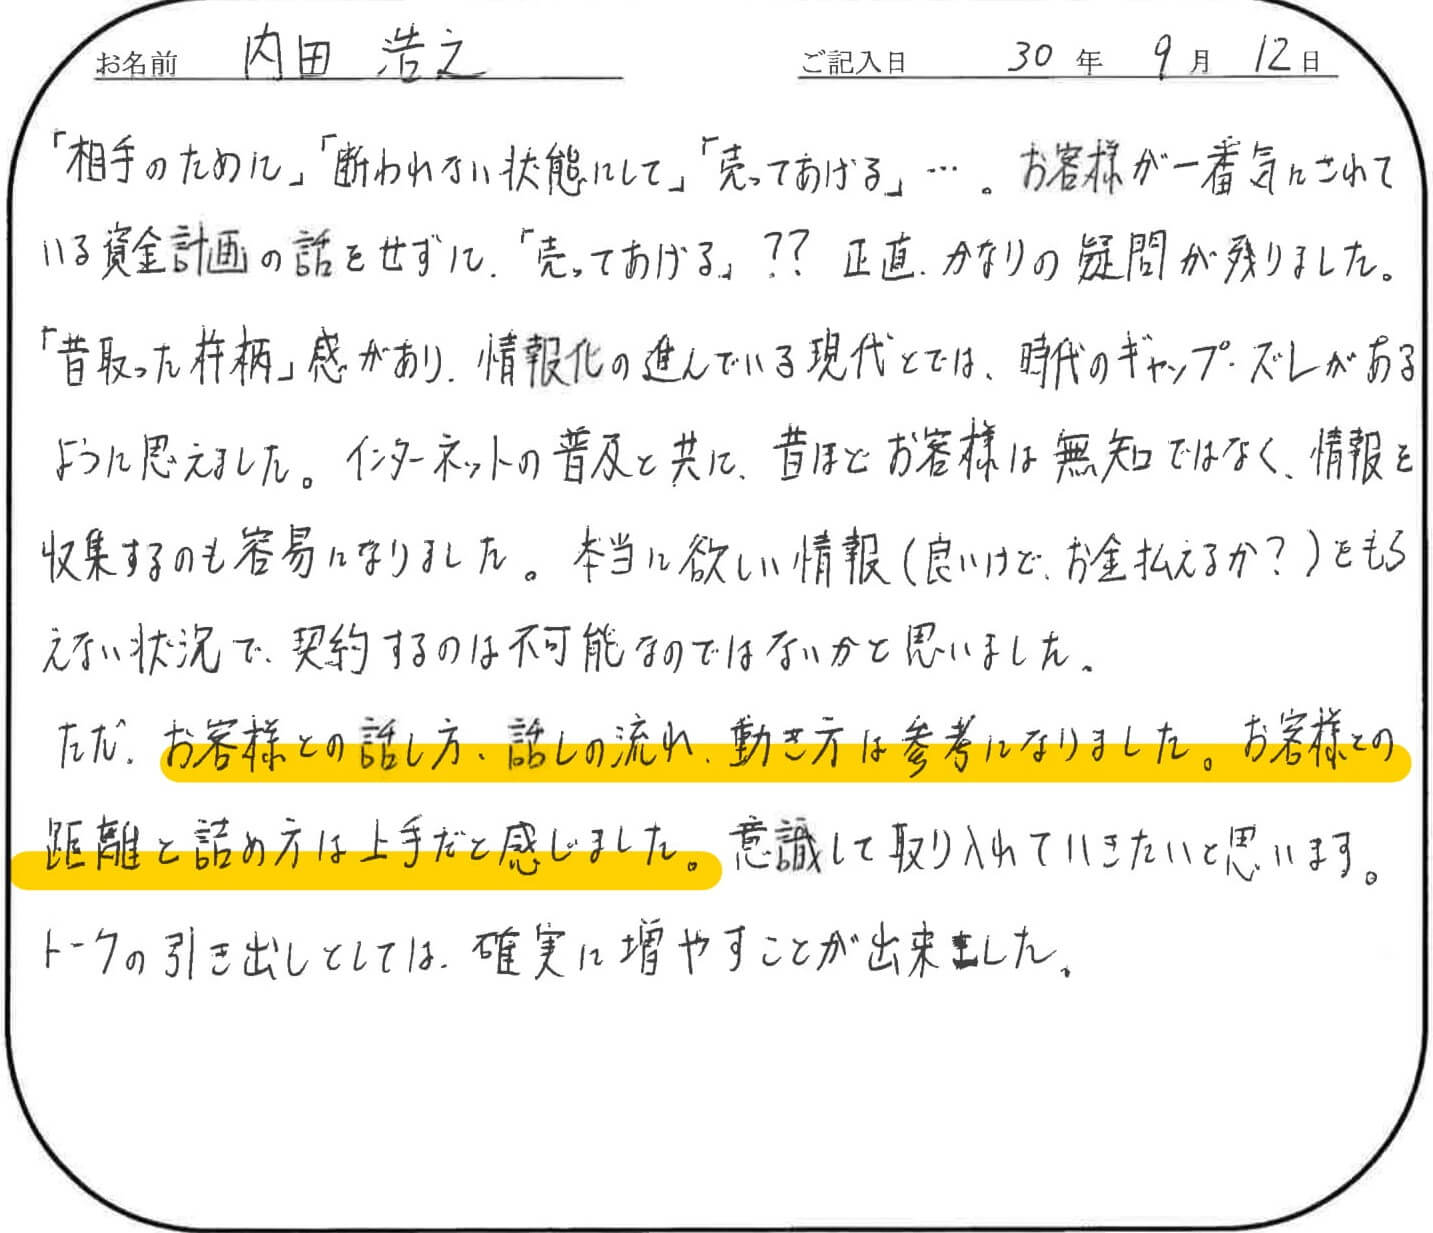 お名前 内田 浩之 ご記入日 30 年 9 月 12 日
「相手のために」「断われない状態にして」「売ってあげる」…。お客様が一番気にされて
いる資金計画の話をせずに、「売ってあげる」?? 正直、かなりの疑問が残りました。
「昔取った杵柄」感があり、情報化の進んでいる現代とでは、時代のギャップ・ズレがある
ように思えました。インターネットの普及と共に、昔ほどお客様は無知ではなく、情報を
収集するのも容易になりました。本当に欲しい情報(良いけど、お金払えるか?)をもら
えない状況で、契約するのは不可能なのではないかと思いました。
ただ、お客様との話し方、話しの流れ、動き方は参考になりました。お客様との
距離と詰め方は上手だと感じました。意識して取り入れていきたいと思います。
トークの引き出しとしては、確実に増やすことが出来ました。